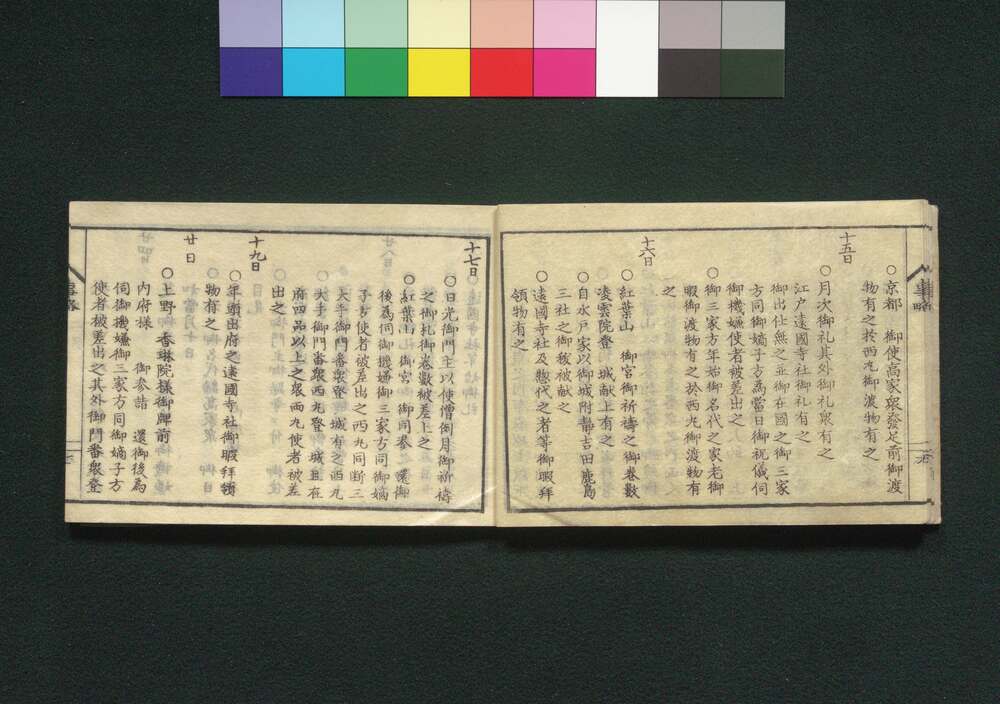 ○京都　御使高家衆發足前御渡
物有之於西丸御渡物有之
十五日
○月次御礼其外御礼衆有之
江戸遠國寺社御礼有之
御出仕無之並御在國之御三家
方同御嫡子方為當日御祝儀伺
御機嫌使者被差出之
○御三家方年始御名代之家老御
暇御渡物有之於西丸御渡物有
之
十六日
○紅葉山　御宮御祈禱之御卷數
凌雲院登　城献上有之
○自水戸家以御城附靜吉田鹿島
三社之御秡被献之
○遠國寺社及惣代之者等御暇拜
領物有之
十七日
○日光御門主以使僧御月御祈禱
之御札御卷數被差上之
○紅葉山　御宮　御同参　還御
後為伺御機嫌御三家方同御嫡
子方使者被差出之西丸同断三
大手御門番衆登　城有之西丸
大手御門番衆西丸登　城且在
府四品以上之衆両丸使者被差
出之
十九日
○年頭出府之遠國寺社御暇拜領
物有之
廿日
○上野　香琳院様御牌前
内府様　御参詣　還御後為
伺御機嫌御三家方同御嫡子方
使者被差出之其外御門番衆登